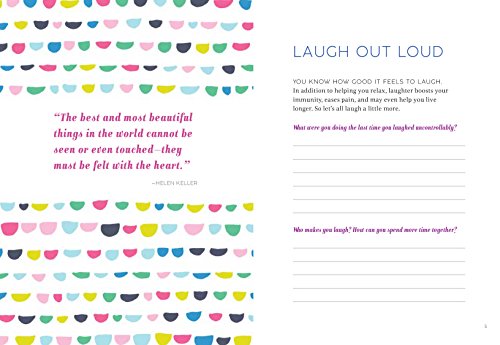 “The best and most beautiful
things in the world cannot be
seen or even touched—they
must be felt with the heart.”
—HELEN KELLER
LAUGH OUT LOUD
YOU KNOW HOW GOOD IT FEELS TO LAUGH.
In addition to helping you relax, laughter boosts your
immunity, eases pain, and may even help you live
longer. So let's all laugh a little more.
What were you doing the last time you laughed uncontrollably?
Who makes you laugh? How can you spend more time together?